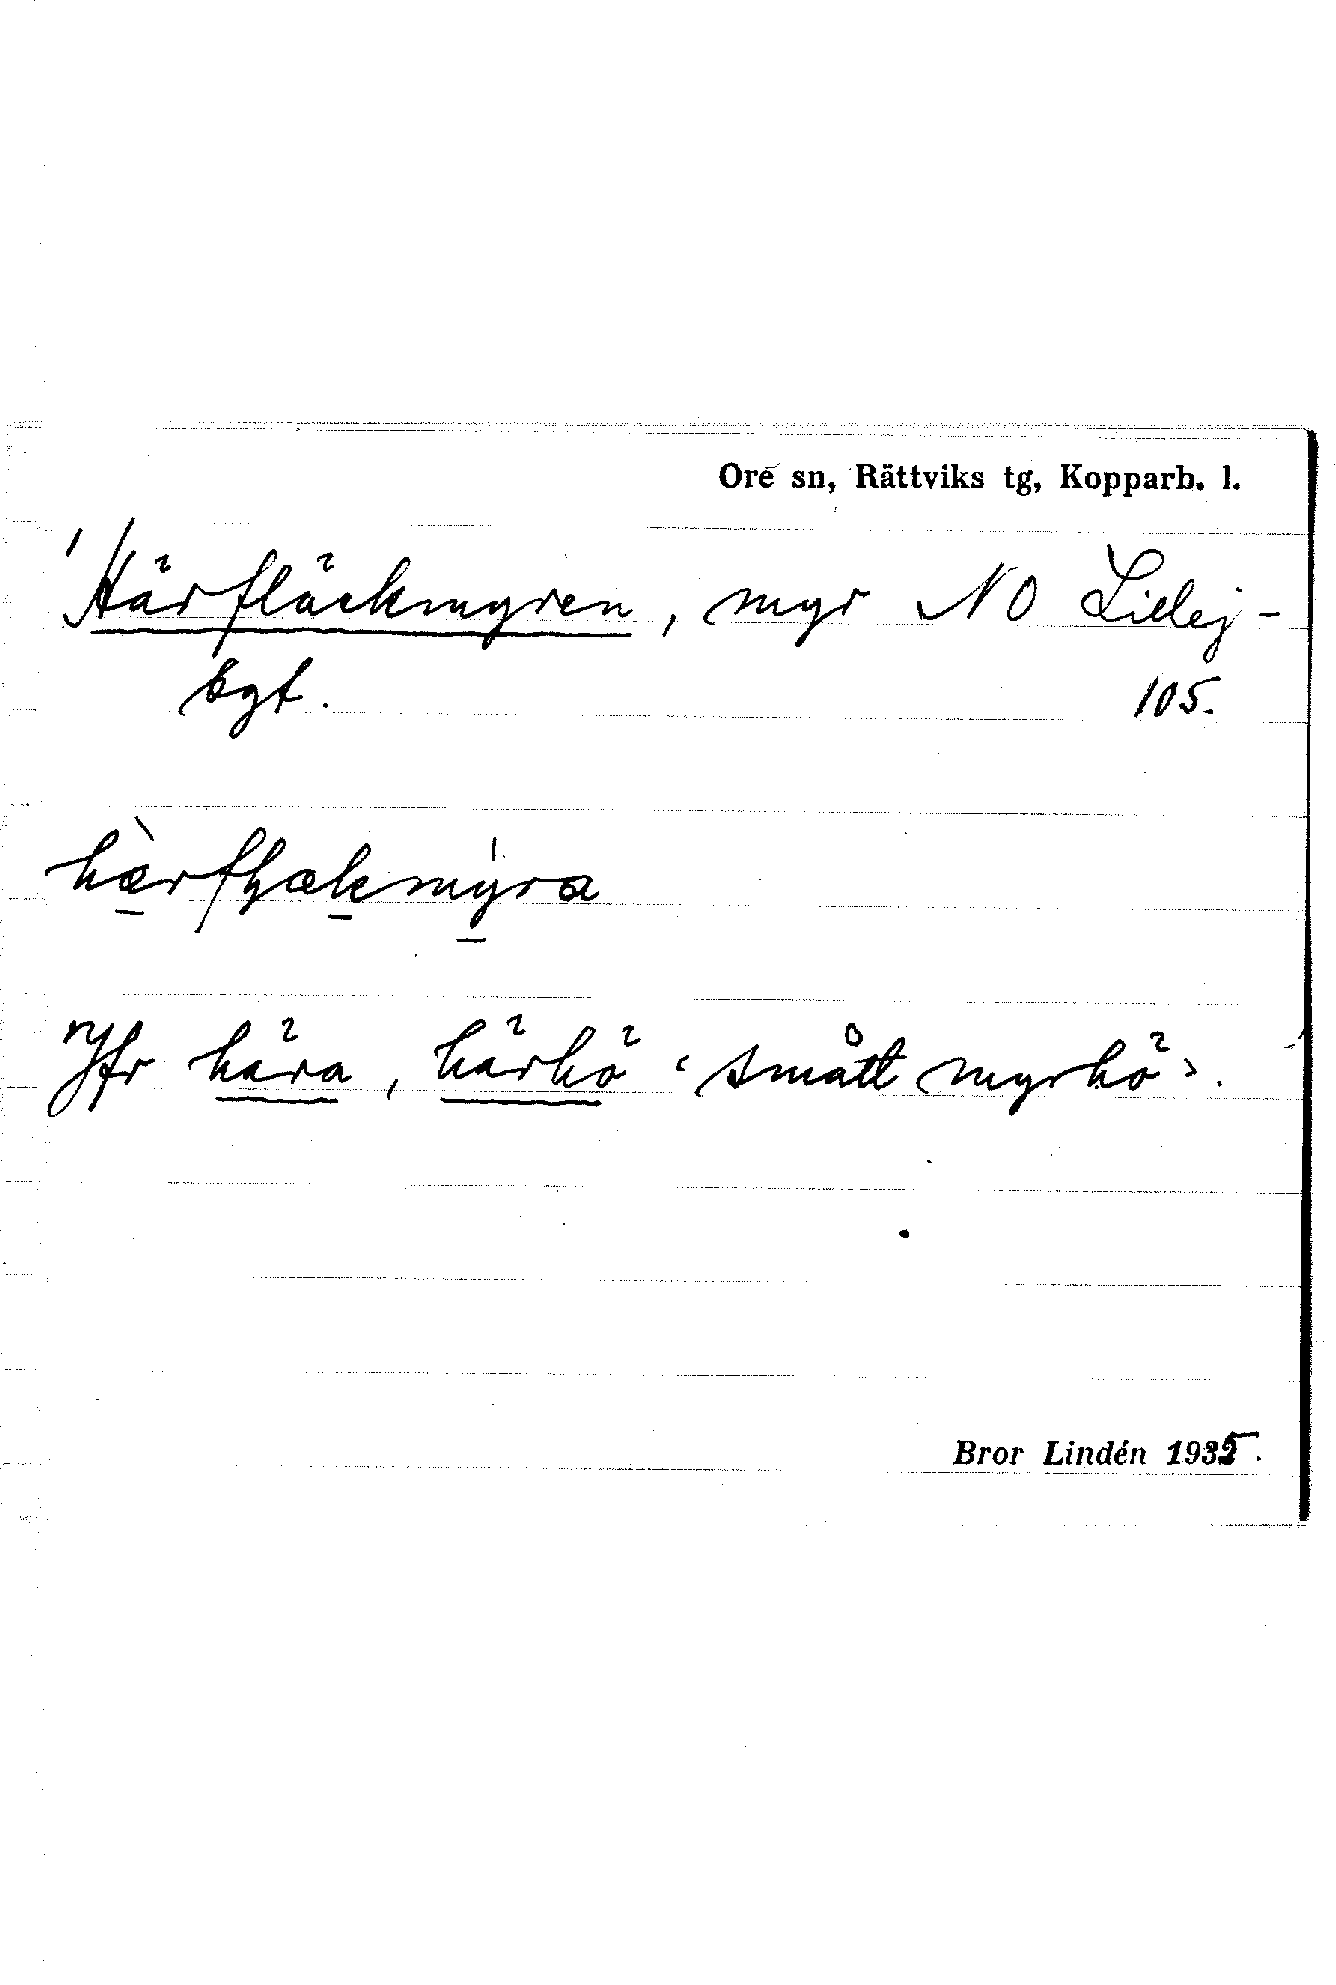 Ore sn, Rättviks tg, Kopparb. l.
Härfläckmyren, myr NO Lillej-
bgt. 105.
hærfɽækmyra
Jfr hära, härhö ‘smått myrhö’.
Bror Lindén 1935.